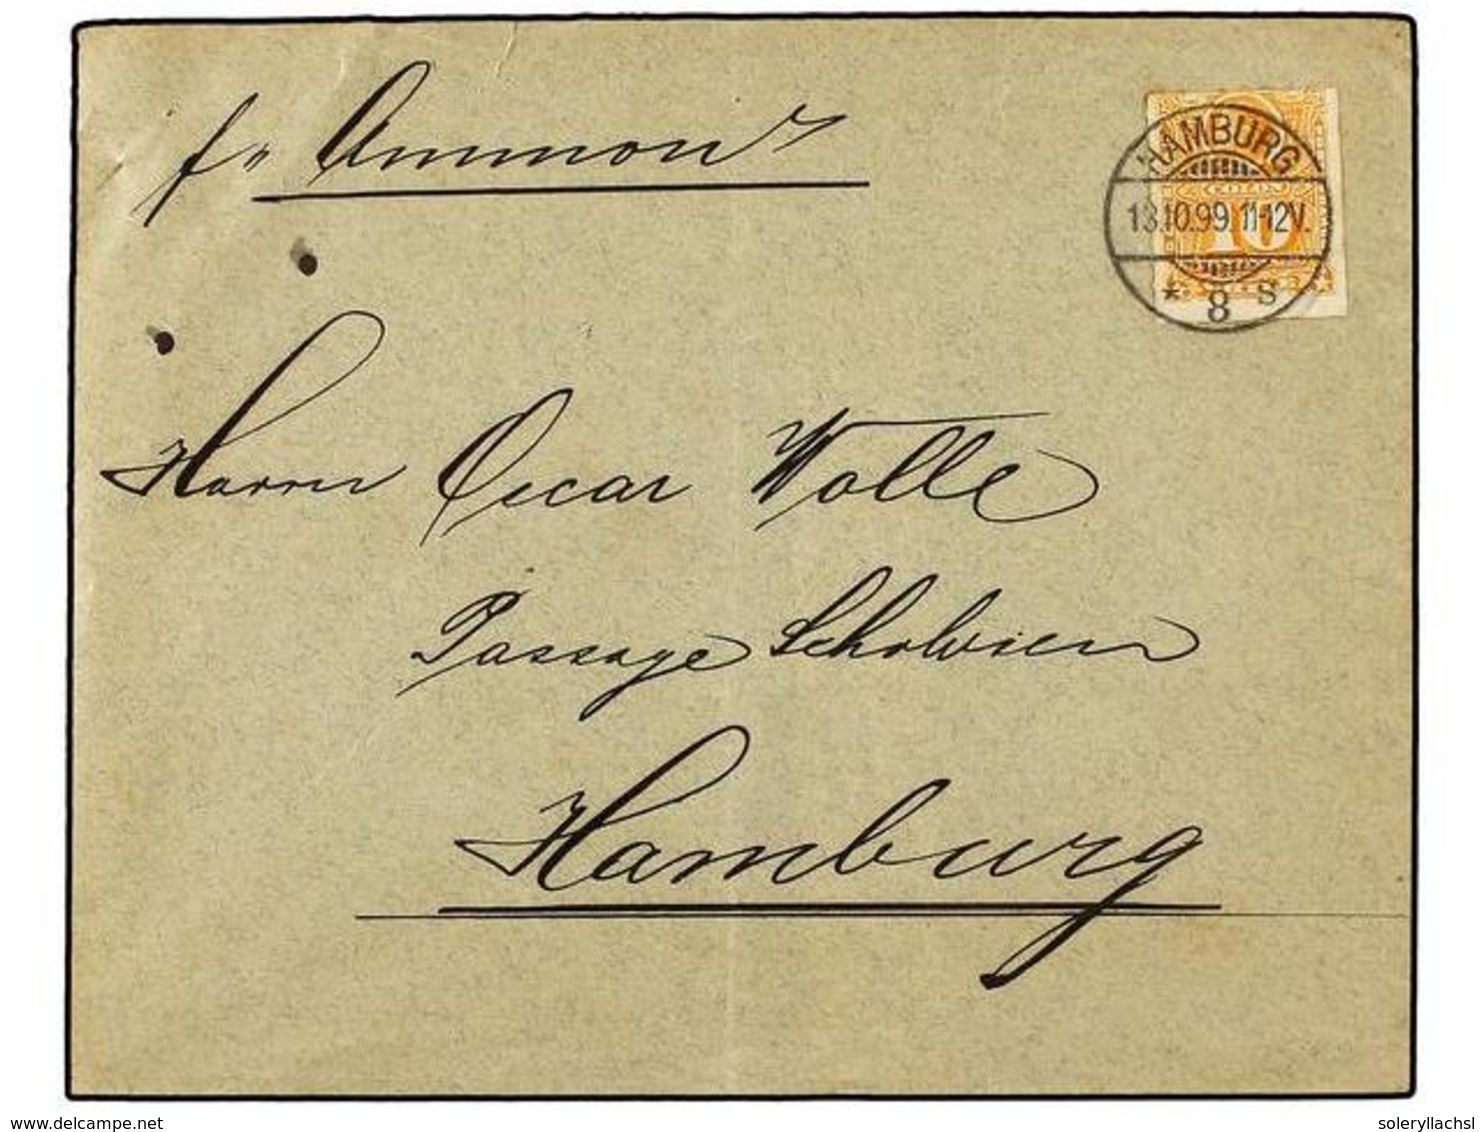 p. Ammon
HAMBURG
COLON
13.10.99. 11-12V.
10
* 8 S
Herrn Oscar Wolle
Passage Scholvien
Hamburg
delcampe.net
soleryllachsl